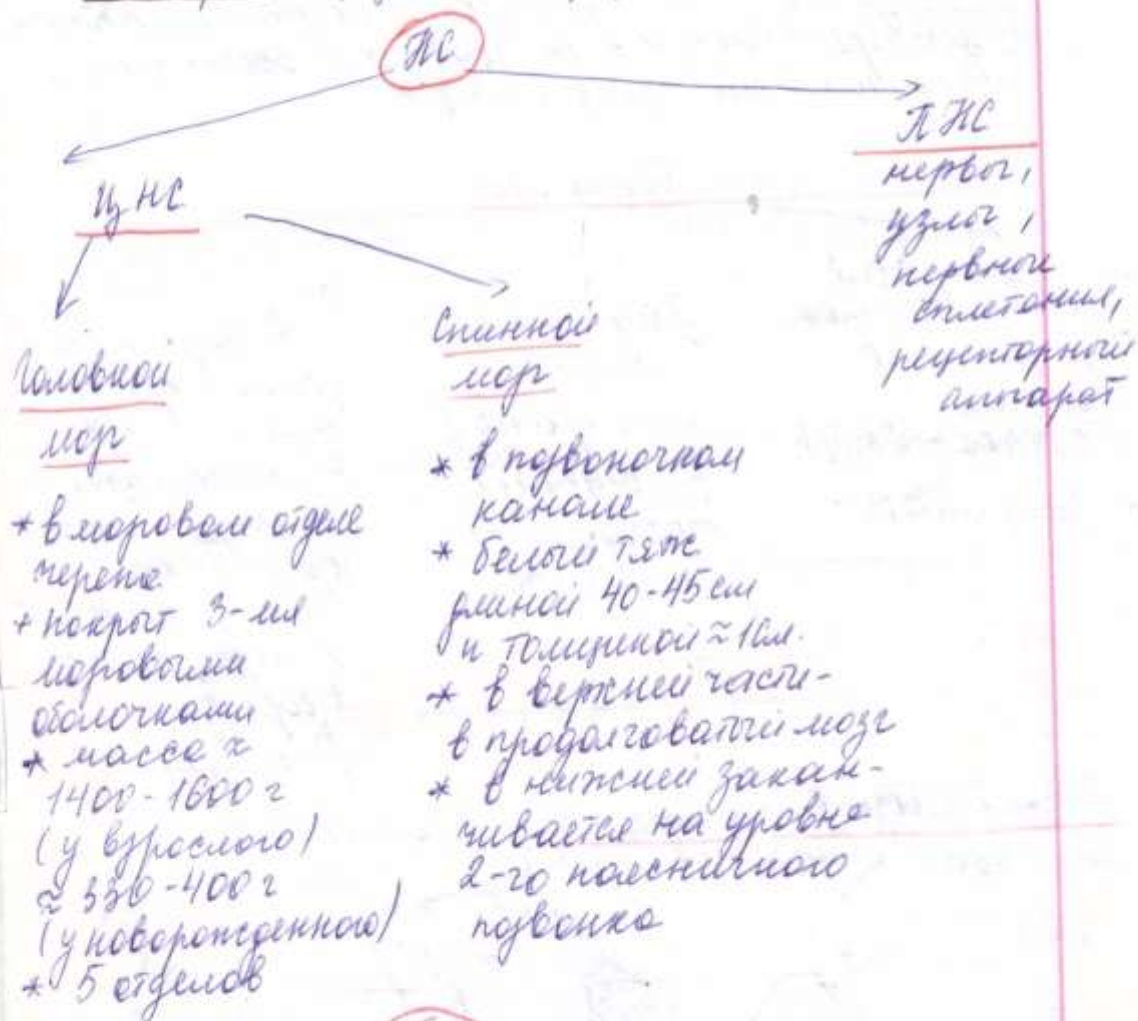 НС
ЦНС
ПНС
нервы,
узлы,
нервные
сплетения,
рецепторный
аппарат
Головной
мозг
* в мозговом отделе
черепа
* покрыт 3-мя
мозговыми
оболочками
* масса ≈
1400-1600 г
(у взрослого)
≈ 330-400 г
(у новорожденного)
* 5 отделов
Спинной
мозг
* в позвоночном
канале
* белый тяж
длиной 40-45 см
и толщиной ≈ 1 см.
* в верхней части -
в продолговатый мозг
* в нижней закан-
чивается на уровне
2-го поясничного
позвонка